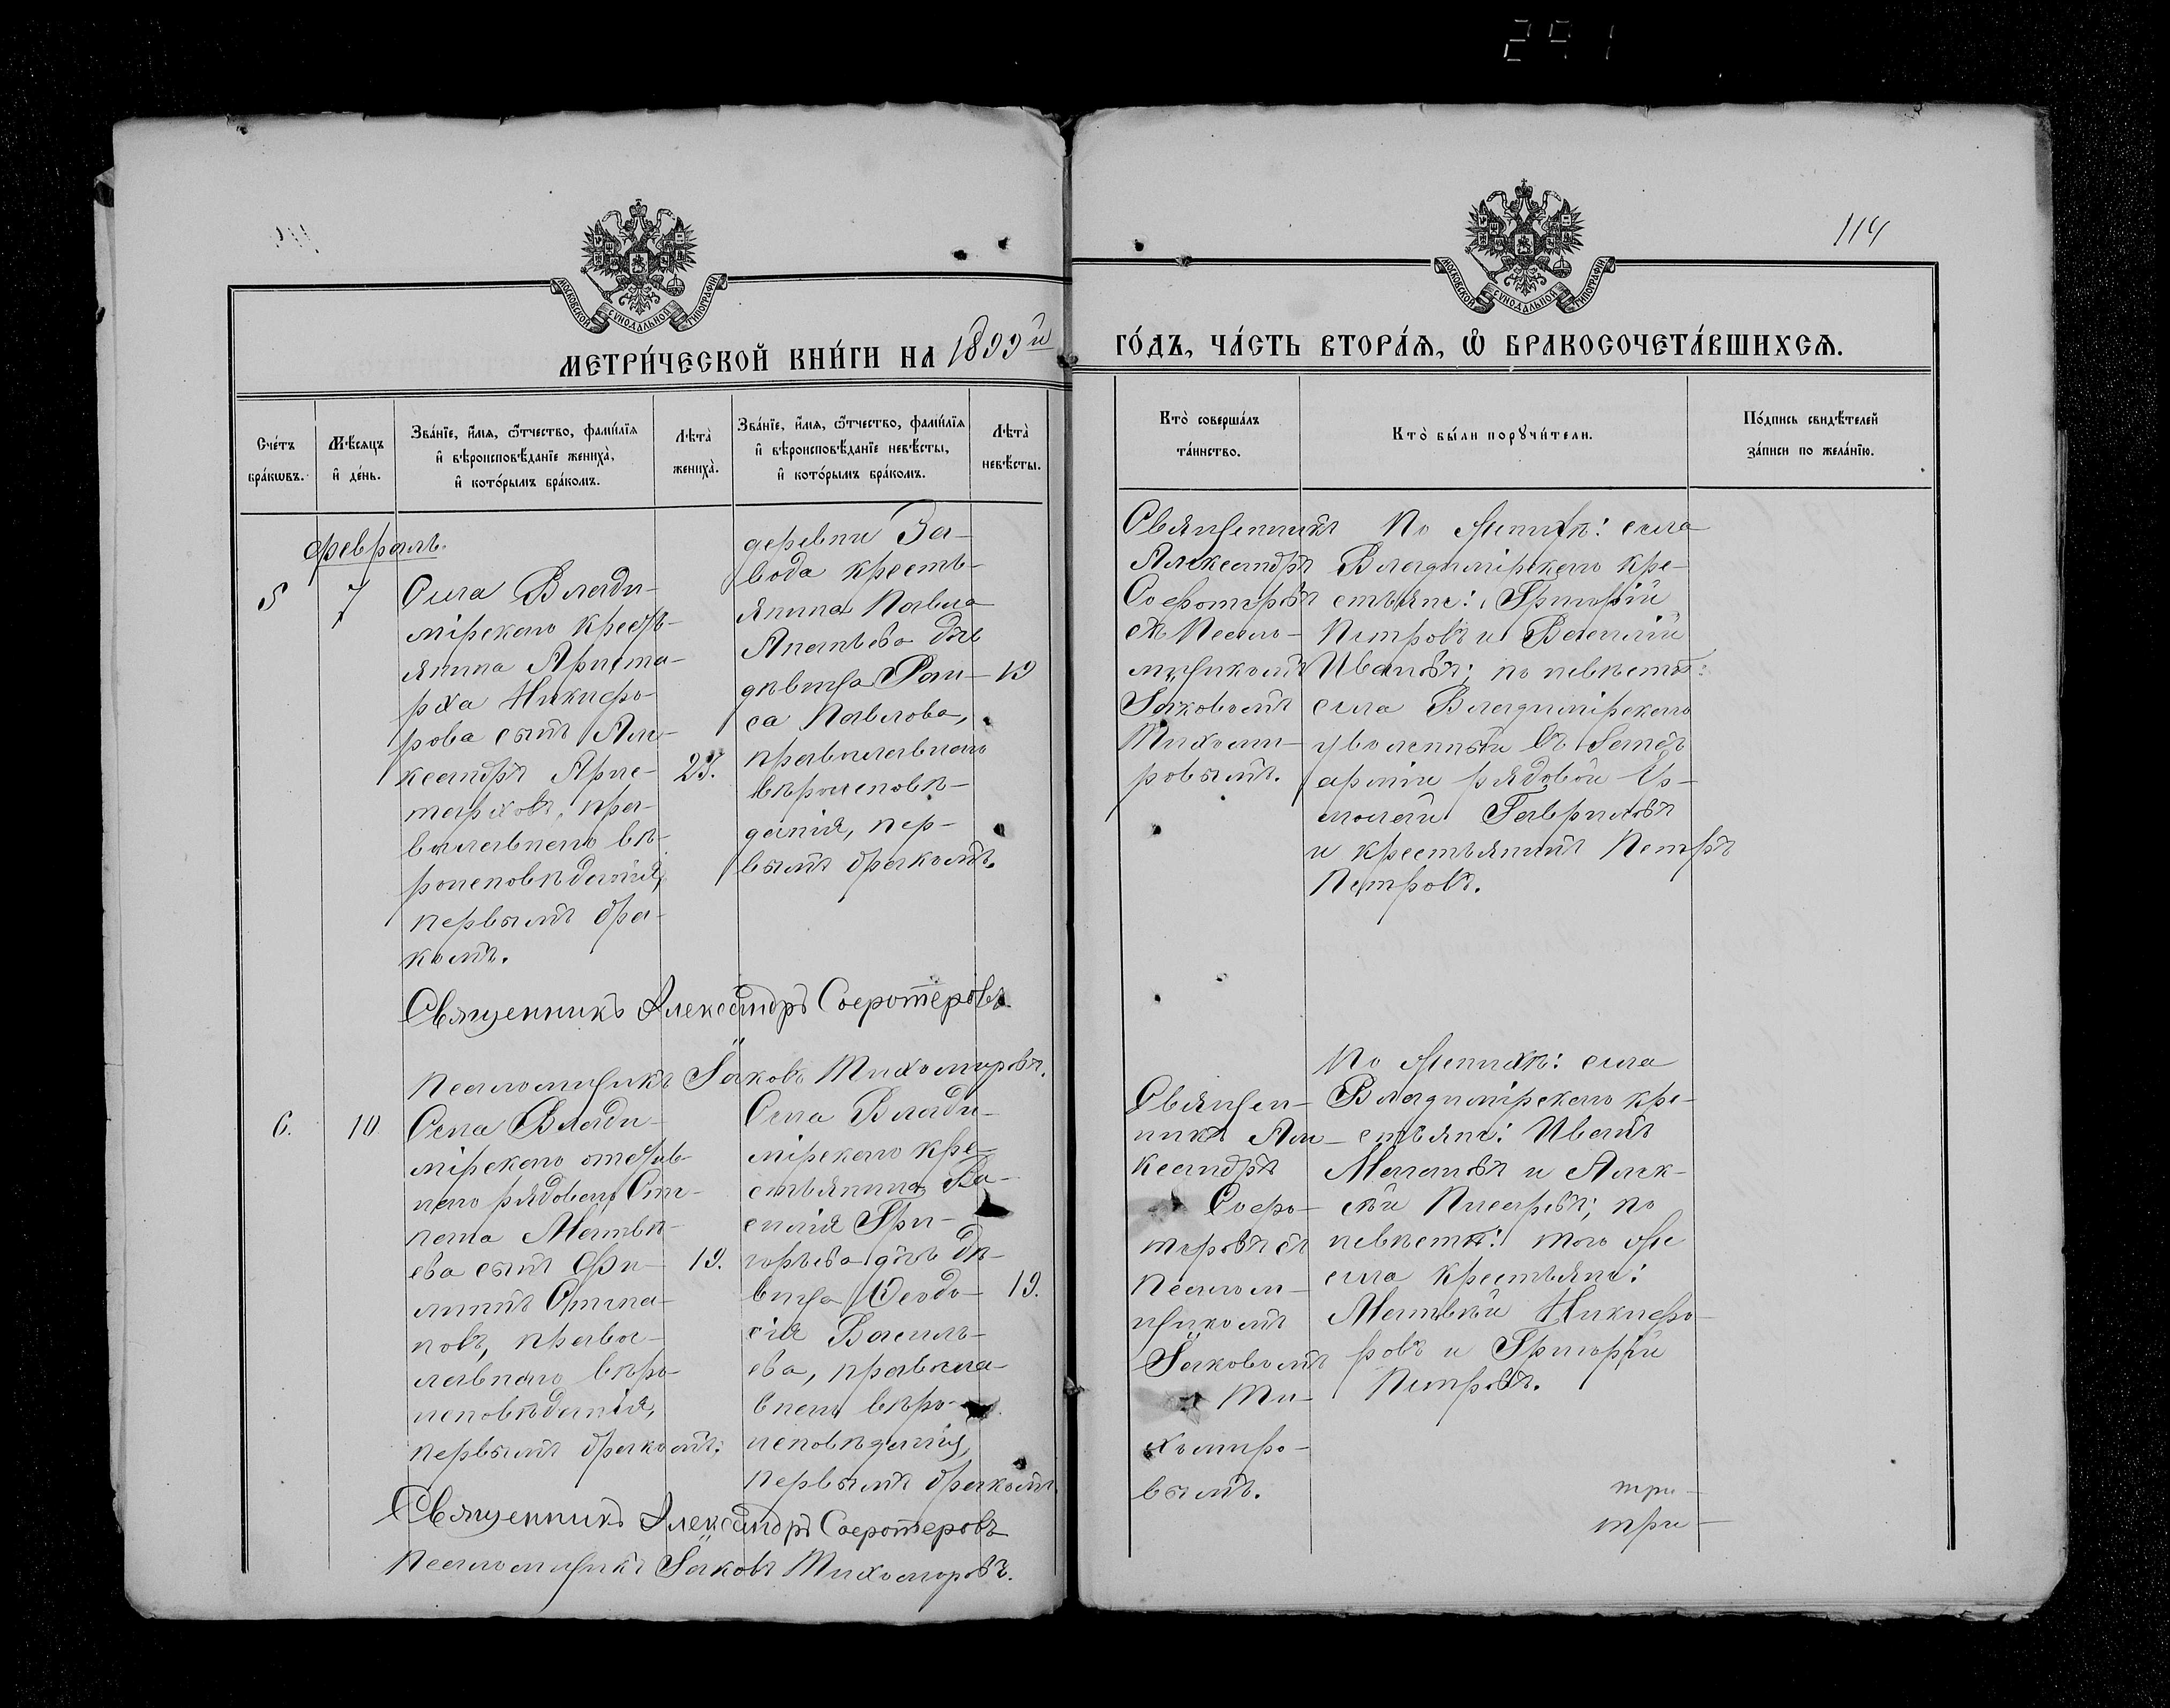 291
114
МОСКОВСКОЙ СУНОДАЛЬНОЙ ТИПОГРАФІИ
МОСКОВСКОЙ СУНОДАЛЬНОЙ ТИПОГРАФІИ
МЕТРИ́ЧЕСКОЙ КНИ́ГИ НА 1899й
ГО́ДЪ, ЧА́СТЬ ВТОРА́Ѧ, Ѡ҆ БРАКОСОЧЕТА́ВШИХСѦ.
Сче́тъ
бра́кѡвъ.
Мѣ́сяцъ
и҆ де́нь.
Зва́нїе, и҆́мя, ѻ҆́тчество, фами́лїя
и҆ вѣроисповѣ́данїе жениха̀,
и҆ кото́рымъ бра́комъ.
Лѣта̀
жениха̀.
Зва́нїе, и҆́мя, ѻ҆́тчество, фами́лїя
и҆ вѣроисповѣ́данїе невѣ́сты,
и҆ кото́рымъ бра́комъ.
Лѣта̀
невѣ́сты.
Кто̀ соверша́лъ
та́инство.
Кто̀ бы́ли порꙋчи́тели.
По́дпись свидѣ́телей
за́писи по жела́нїю.
февраль.
5
7
Села Влади-
мірскаго кресть-
янина Ариста-
рха Никифо-
рова сынъ Але-
ксандръ Арис-
тарховъ, пра-
вославнаго вѣ-
роисповѣданія,
первымъ бра-
комъ.
23.
деревни За-
вода кресть-
янина Павла
Ананьева дчь
дѣвица Раи-
са Павлова,
православнаго
вѣроисповѣ-
данія, пер-
вымъ бракомъ.
19
Священникъ
Александръ
Софотеровъ
съ Псало-
мщикомъ
Іаковомъ
Тихоми-
ровымъ.
По женихѣ: села
Владимірскаго кре-
стьяне: Григорій
Петровъ и Василій
Ивановъ; по невѣстѣ:
села Владимірскаго
уволенный въ запасъ
арміи рядовой Ер-
молай Гавриловъ
и крестьянинъ Петръ
Петровъ.
Священникъ Александръ Соеротеровъ
Псаломщикъ Іаковъ Тихомировъ.
6.
10
Села Влади-
мірскаго отстав-
наго рядоваго Сте-
пана Матвѣ-
ева сынъ Фи-
липпъ Степа-
новъ, правос-
лавнаго вѣро-
исповѣданія,
первымъ бракомъ;
19.
Села Влади-
мірскаго кре-
стьянина Ва-
силія Гри-
горьева дчь дѣ-
вица Ѳеодо-
сія Василь-
ева, правосла-
внаго вѣро-
исповѣданія,
первымъ бракомъ
19.
Священ-
никъ Але-
ксандръ
Софо-
теровъ съ
Псалом-
щикомъ
Іаковомъ
Ти-
хомиро-
вымъ.
По женихѣ: села
Владимірскаго кре-
стьяне: Иванъ
и Алек-
сѣй Писаревъ; по
невѣстѣ: того же
села крестьяне:
Матвѣй Никифо-
ровъ и Григорій
Петровъ.
три-
три-
Священникъ Александръ Соеротеровъ
Псаломщикъ Іаковъ Тихомировъ.